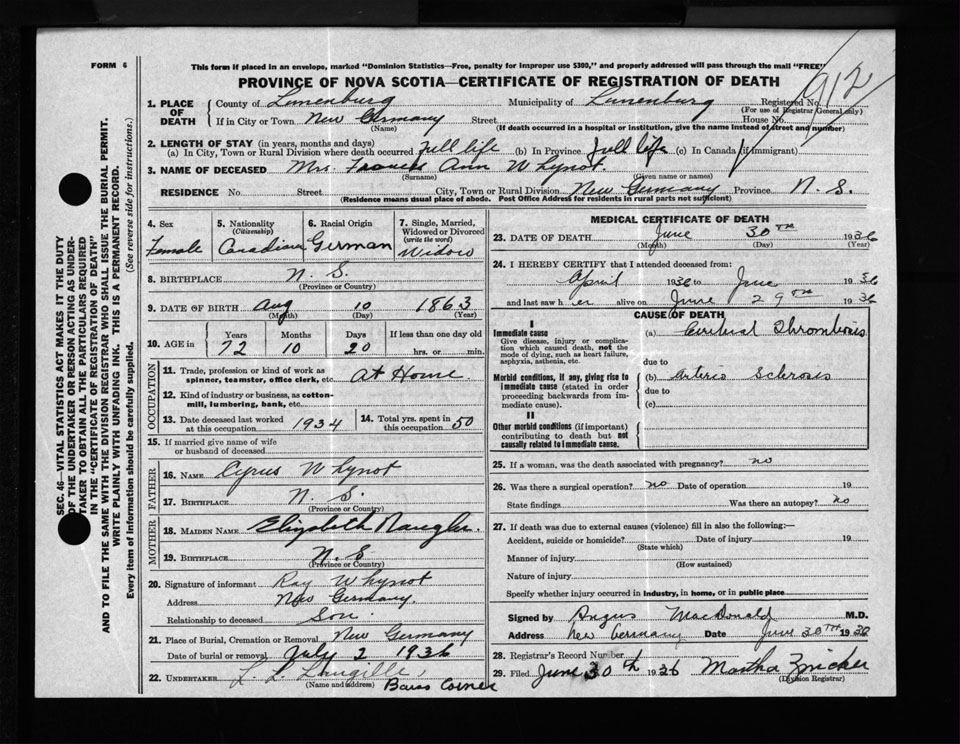 FORM 6
This form if placed in an envelope, marked "Dominion Statistics—Free, penalty for improper use $300," and properly addressed will pass through the mail "FREE"
PROVINCE OF NOVA SCOTIA—CERTIFICATE OF REGISTRATION OF DEATH
912
1. PLACE OF DEATH County of Lunenburg Municipality of Lunenburg Registered No.
(For use of Registrar General only)
If in City or Town New Germany Street House No.
(Name) (If death occurred in a hospital or institution, give the name instead of street and number)
2. LENGTH OF STAY (in years, months and days)
(a) In City, Town or Rural Division where death occurred full life (b) In Province full life (c) In Canada (if immigrant)
3. NAME OF DECEASED Mrs. Frances Ann Whynot.
(Surname) (Given name or names)
RESIDENCE No. Street City, Town or Rural Division New Germany Province N. S.
(Residence means usual place of abode. Post Office Address for residents in rural parts not sufficient)
4. Sex Female
5. Nationality (Citizenship) Canadian
6. Racial Origin German
7. Single, Married, Widowed or Divorced (write the word) Widow
8. BIRTHPLACE N. S.
(Province or Country)
9. DATE OF BIRTH Aug 10 1863
(Month) (Day) (Year)
10. AGE in Years 72 Months 10 Days 20 If less than one day old hrs. or min.
OCCUPATION
11. Trade, profession or kind of work as spinner, teamster, office clerk, etc. At Home
12. Kind of industry or business, as cotton-mill, lumbering, bank, etc.
13. Date deceased last worked at this occupation 1934
14. Total yrs. spent in this occupation 50
15. If married give name of wife or husband of deceased
FATHER
16. NAME Cyrus Whynot
17. BIRTHPLACE N. S.
(Province or Country)
MOTHER
18. MAIDEN NAME Elizabeth Naugler.
19. BIRTHPLACE N. S
(Province or Country)
20. Signature of informant Ray Whynot
Address New Germany.
Relationship to deceased Son.
21. Place of Burial, Cremation or Removal New Germany
Date of burial or removal July 2 1936
22. UNDERTAKER L. L.
(Name and address) Corner
MEDICAL CERTIFICATE OF DEATH
23. DATE OF DEATH June 30TH 1936
(Month) (Day) (Year)
24. I HEREBY CERTIFY that I attended deceased from:
April 1936 to June 1936
and last saw her alive on June 29TH 1936
CAUSE OF DEATH
I
Immediate cause
Give disease, injury or complication which caused death, not the mode of dying, such as heart failure, asphyxia, asthenia, etc.
(a) Cerebral Thrombosis
due to
Morbid conditions, if any, giving rise to immediate cause (stated in order proceeding backwards from immediate cause).
(b) Arterio Sclerosis
due to
(c)
II
Other morbid conditions (if important) contributing to death but not causally related to immediate cause.
25. If a woman, was the death associated with pregnancy? no
26. Was there a surgical operation? no Date of operation 19
State findings Was there an autopsy? no
27. If death was due to external causes (violence) fill in also the following:—
Accident, suicide or homicide? Date of injury 19
(State which)
Manner of injury
(How sustained)
Nature of injury
Specify whether injury occurred in industry, in home, or in public place
Signed by Angus MacDonald M.D.
Address New Germany Date June 30TH 1936
28. Registrar's Record Number
29. Filed June 30th 1936 Martha Zwicker
(Division Registrar)
SEC. 46—VITAL STATISTICS ACT MAKES IT THE DUTY
OF THE UNDERTAKER OR PERSON ACTING AS UNDER-
TAKER TO OBTAIN ALL THE PARTICULARS REQUIRED
IN THE "CERTIFICATE OF REGISTRATION OF DEATH"
AND TO FILE THE SAME WITH THE DIVISION REGISTRAR WHO SHALL ISSUE THE BURIAL PERMIT.
WRITE PLAINLY WITH UNFADING INK. THIS IS A PERMANENT RECORD.
Every item of information should be carefully supplied. (See reverse side for instructions.)